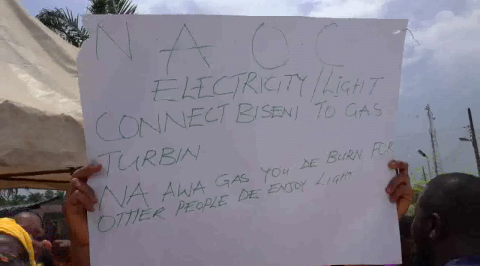 N A O C
ELECTRICITY/LIGHT
CONNECT BISENI TO GAS
TURBIN
NA AWA GAS YOU DE BURN FOR
OTHER PEOPLE DE ENJOY LIGHT